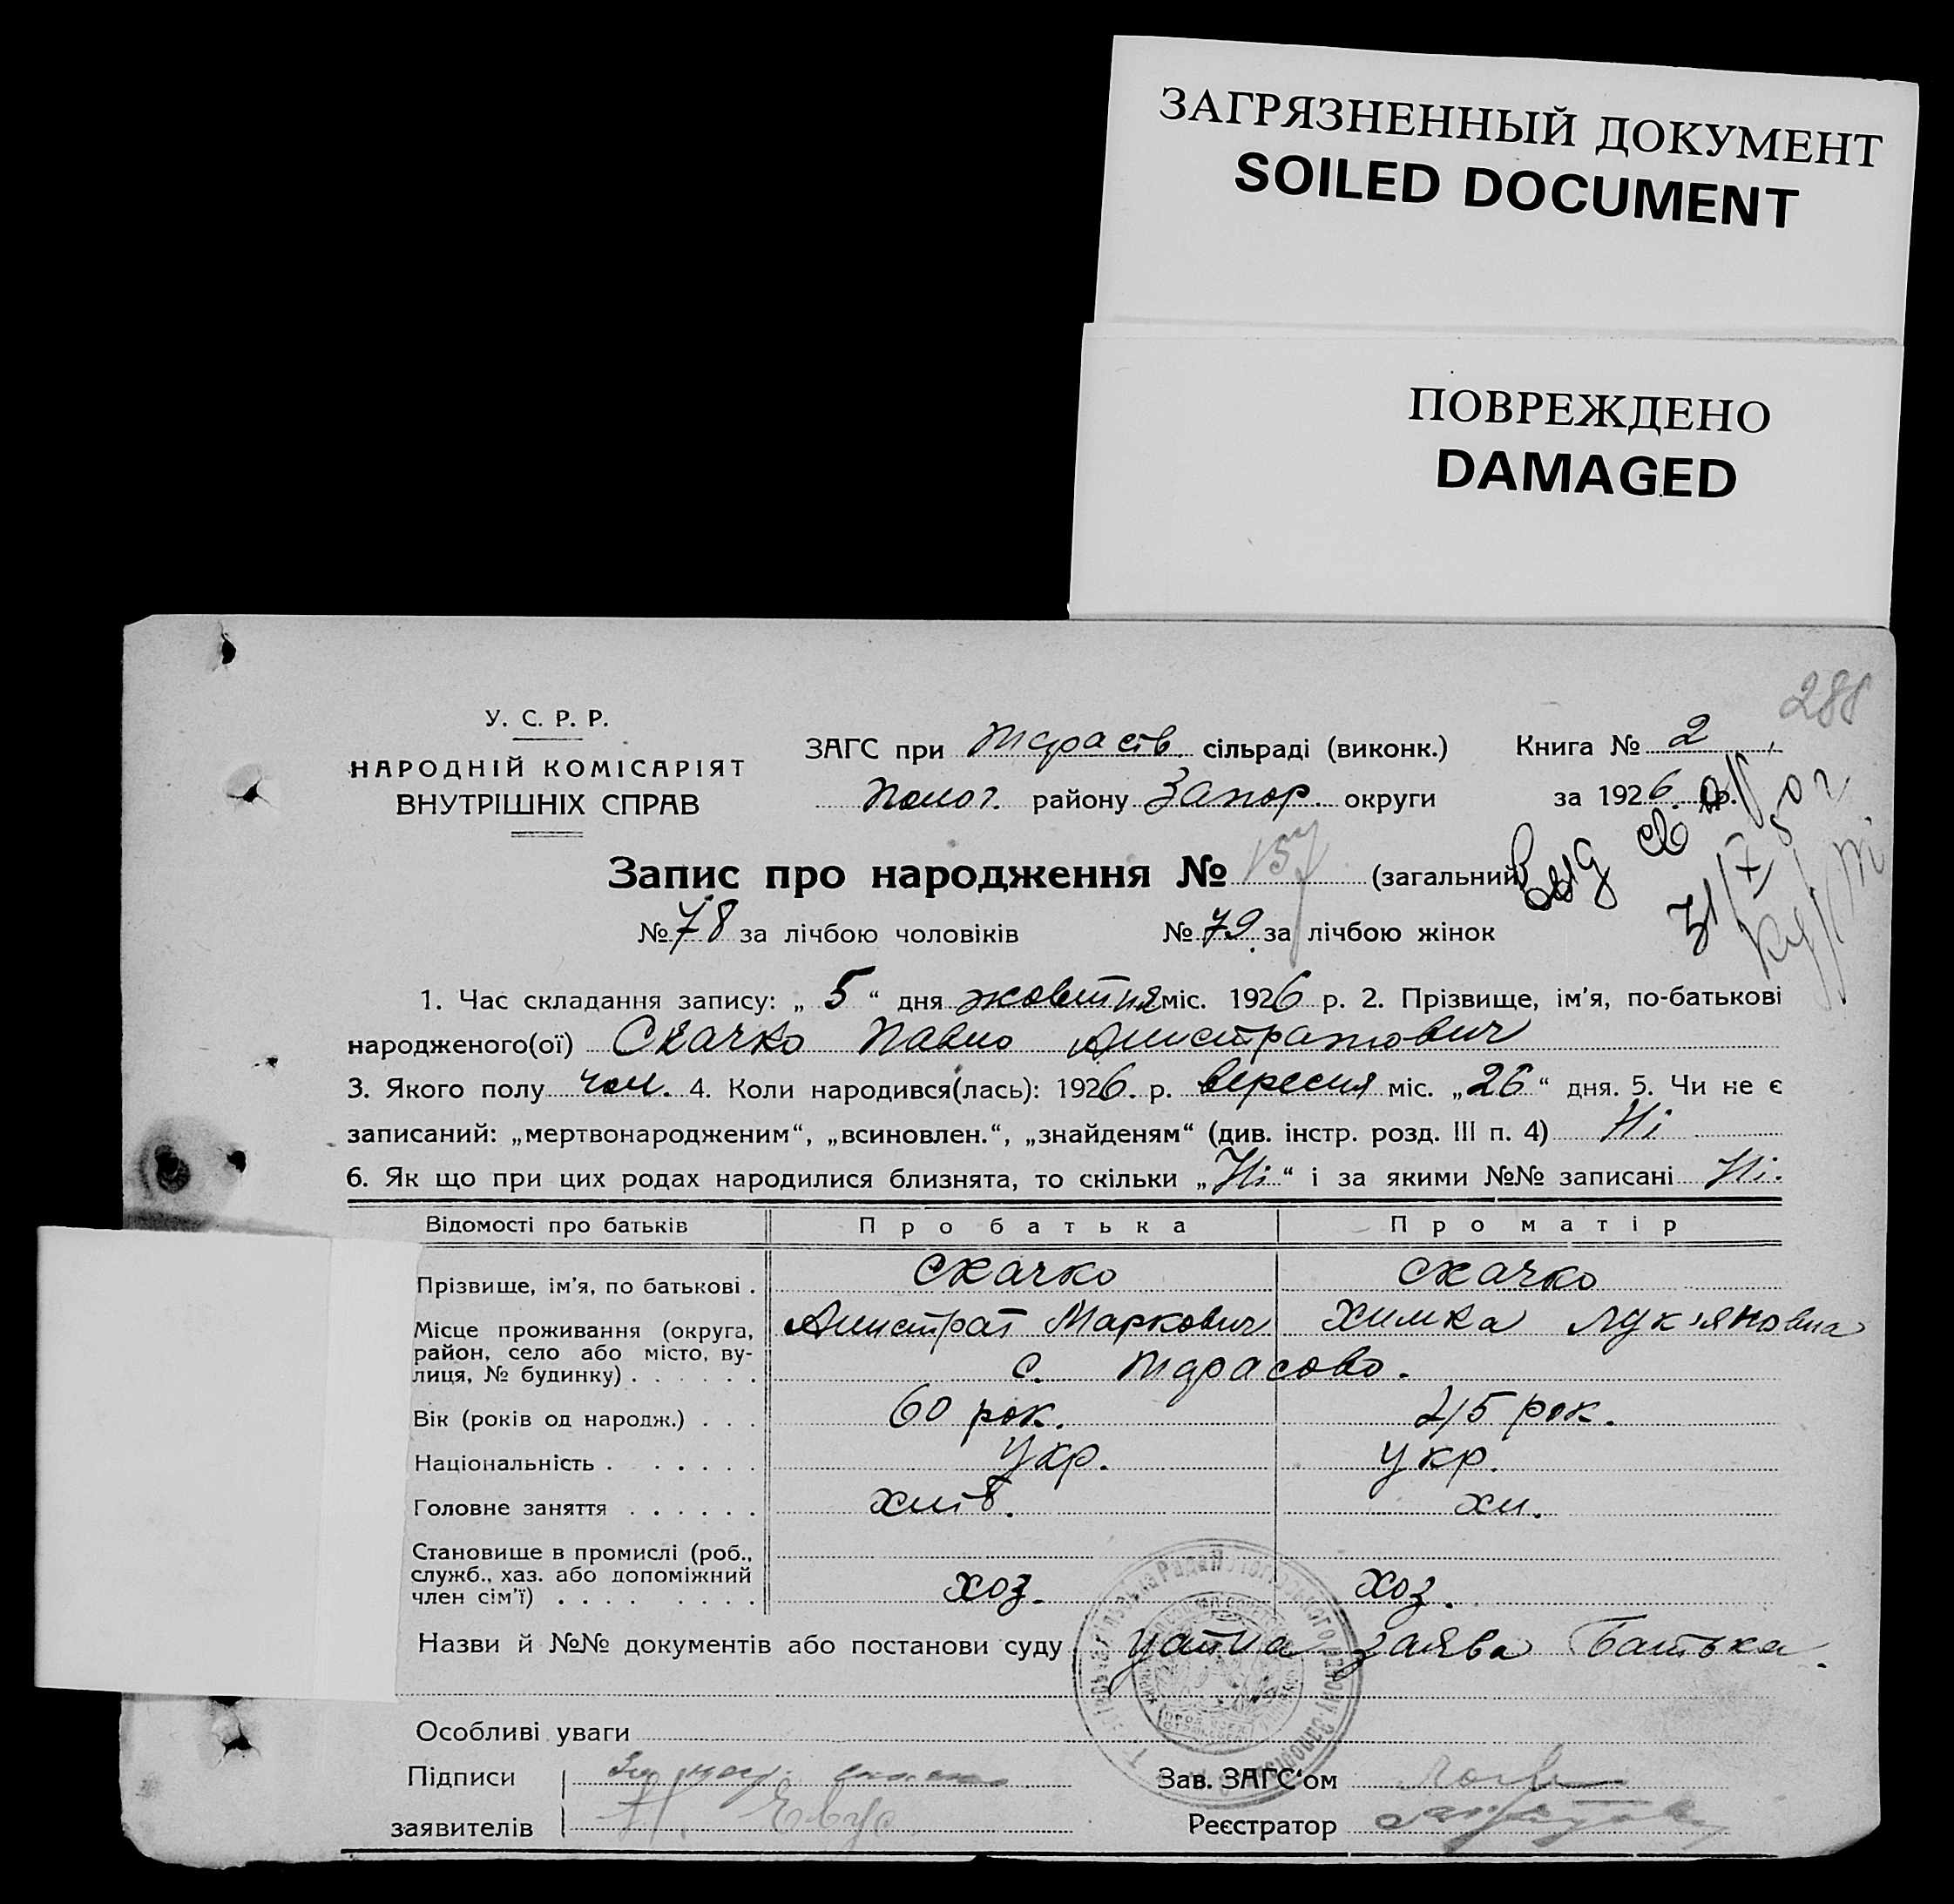 ЗАГРЯЗНЕННЫЙ ДОКУМЕНТ
SOILED DOCUMENT
ПОВРЕЖДЕНО
DAMAGED
288
У. С. Р. Р.
НАРОДНІЙ КОМІСАРІЯТ
ВНУТРІШНІХ СПРАВ
ЗАГС при Тарасів сільраді (виконк.) Книга № 2
Полог. району Запор. округи за 1926 р.
Выд св
Запис про народження № 157 (загальний
№ 78 за лічбою чоловіків № 79 за лічбою жінок
1. Час складання запису: „ 5 “ дня жовтня міс. 1926 р. 2. Прізвище, ім'я, по-батькові
народженого(ої) Скачко Павло Алистратович
3. Якого полу чол. 4. Коли народився(лась): 1926. р. вересня міс. „26“ дня. 5. Чи не є
записаний: „мертвонародженим“, „всиновлен.“, „знайденям“ (див. інстр. розд. III п. 4) Ні
6. Як що при цих родах народилися близнята, то скільки „Ні“ і за якими №№ записані Ні.
Відомості про батьків Про батька Про матір
Прізвище, ім'я, по батькові . Скачко Скачко
Місце проживання (округа, Алистрат Маркович Химка Лук'яновна
район, село або місто, ву-
лиця, № будинку) . . . . . . с. Тарасово.
Вік (років од народж.) . . . 60 рок. 45 рок.
Національність . . . . . . Укр. Укр.
Головне заняття . . . . . . хліб. хл.
Становище в промислі (роб.,
служб., хаз. або допоміжний
член сім'ї) . . . . . . . . хоз. хоз.
Назви й №№ документів або постанови суду устна заява батька.
Особливі уваги
Підписи Зав. ЗАГС'ом
заявителів Реєстратор